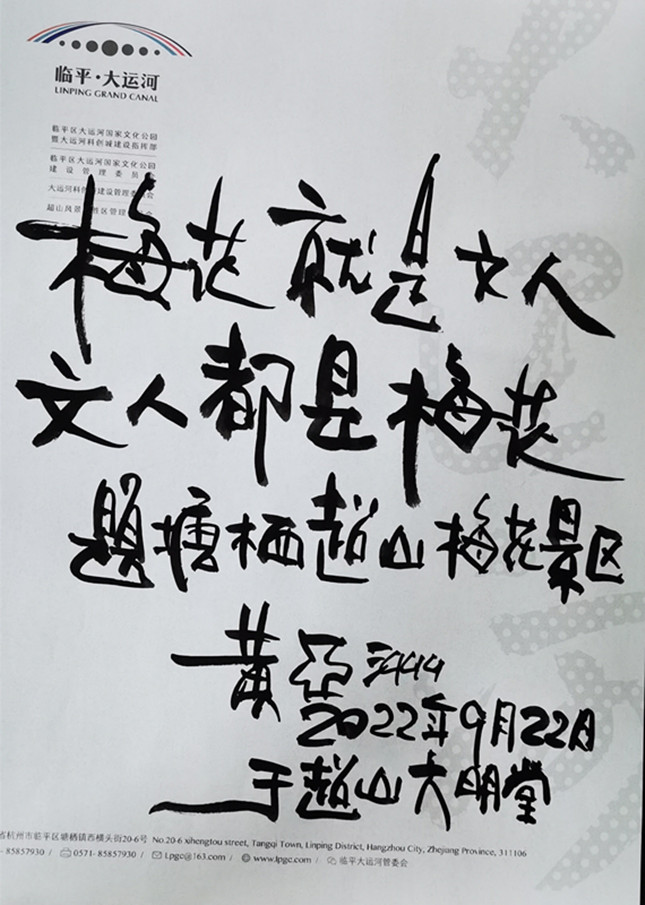 临平·大运河
LINPING GRAND CANAL
临平区大运河国家文化公园
暨大运河科创城建设指挥部
临平区大运河国家文化公园
建设管理委员会
大运河科创城建设管理委员会
超山风景名胜区管理委员会
梅花就是文人
文人都是梅花
题塘栖超山梅花景区
黄亚洲
2022年9月22日
于超山大明堂
省杭州市临平区塘栖镇西横头街20-6号 No.20-6 xihengtou street, Tangqi Town, Linping District, Hangzhou City, Zhejiang Province, 311106
- 85857930 / 0571- 85857930 / Lpgc@163.com / www.lpgc.com / 临平大运河管委会